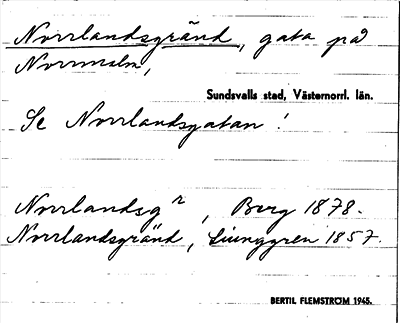 Norrlandsgränd, gata på
Norrmalm,
Sundsvalls stad, Västernorrl. län.
Se Norrlandsgatan!
Norrlandsg n, Berg 1878.
Norrlandsgränd, Ljunggren 1857.
BERTIL FLEMSTRÖM 1945.